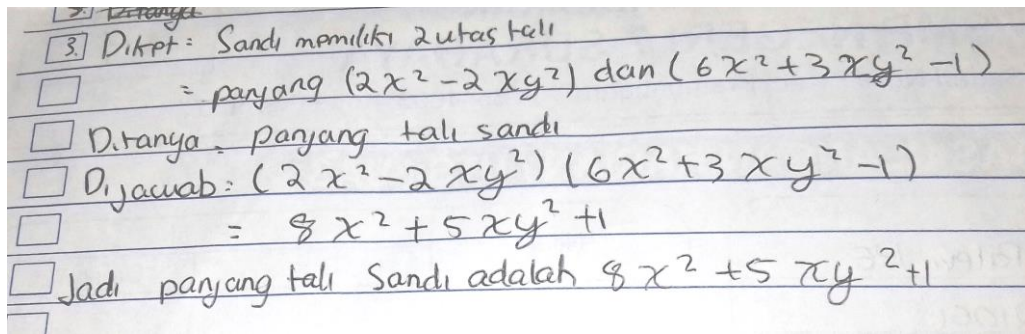 3. Ditanya
3. Diket: Sandi memiliki 2 utas tali
= panjang (2x² - 2xy²) dan (6x² + 3xy² - 1)
Ditanya: panjang tali sandi
Dijawab: (2x² - 2xy²) (6x² + 3xy² - 1)
= 8x² + 5xy² + 1
Jadi panjang tali Sandi adalah 8x² + 5xy² + 1